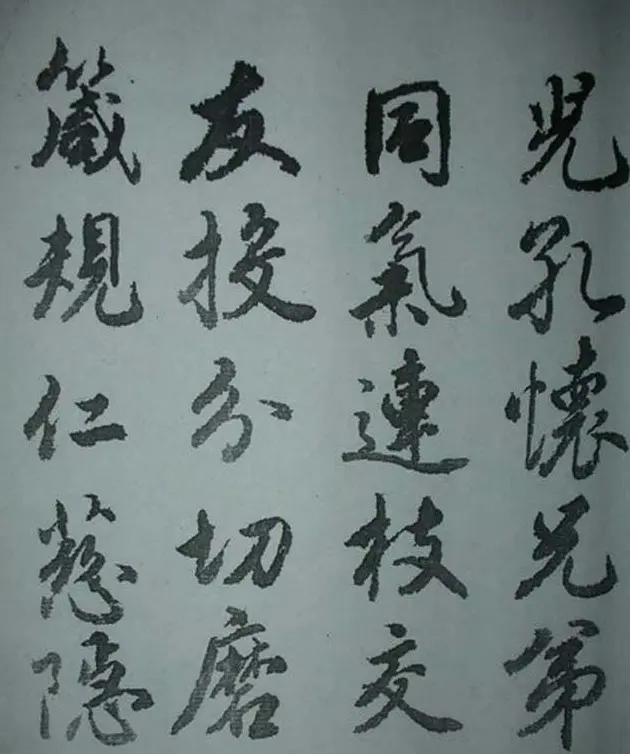 兒孔懷兄弟
同氣連枝交
友投分切磨
箴規仁慈隱